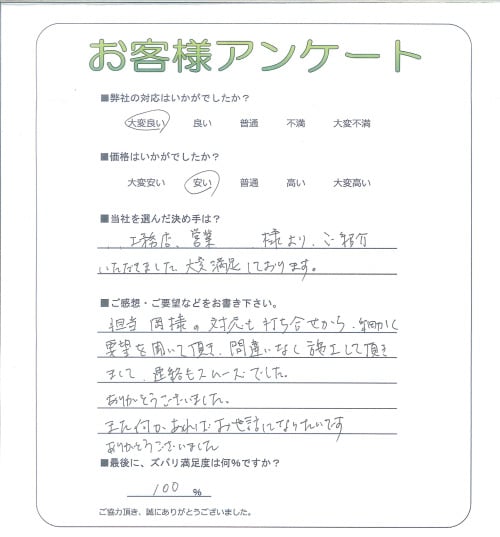 お客様アンケート
■弊社の対応はいかがでしたか？
大変良い 良い 普通 不満 大変不満
■価格はいかがでしたか？
大変安い 安い 普通 高い 大変高い
■当社を選んだ決め手は？
工務店、営業 様より、ご紹介
いただきました 大変満足しております。
■ご感想・ご要望などをお書き下さい。
担当 岡様の対応も打ち合せから、細かく
要望を聞いて頂き、間違いなく施工して頂き
まして、連絡もスムーズでした。
ありがとうございました。
また何かあればお世話になりたいです
ありがとうございました
■最後に、ズバリ満足度は何%ですか？
100 %
ご協力頂き、誠にありがとうございました。